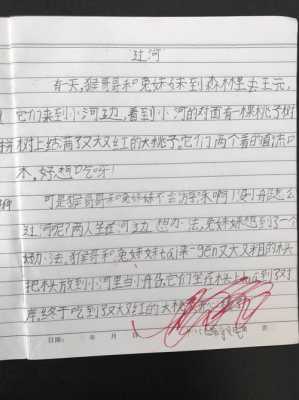 过河
有一天,猴哥哥和兔妹妹到森林里去玩,
它们来到小河边,看到小河的对面有一棵桃子树
桃树上结满了又大又红的大桃子。它们两个看的直流口
水,好想吃呀!
可是猴哥哥和兔妹妹不会游泳啊!没小船怎么
过河呢?两人坐在河边想办法,兔妹妹想到了一个
好办法,猴哥和兔妹妹找来一gen又大又粗的木头
把木头放到小河里当小舟,它们坐在木头上到了对
岸,终于吃到了又大又红的大桃
日期: 年 月 日